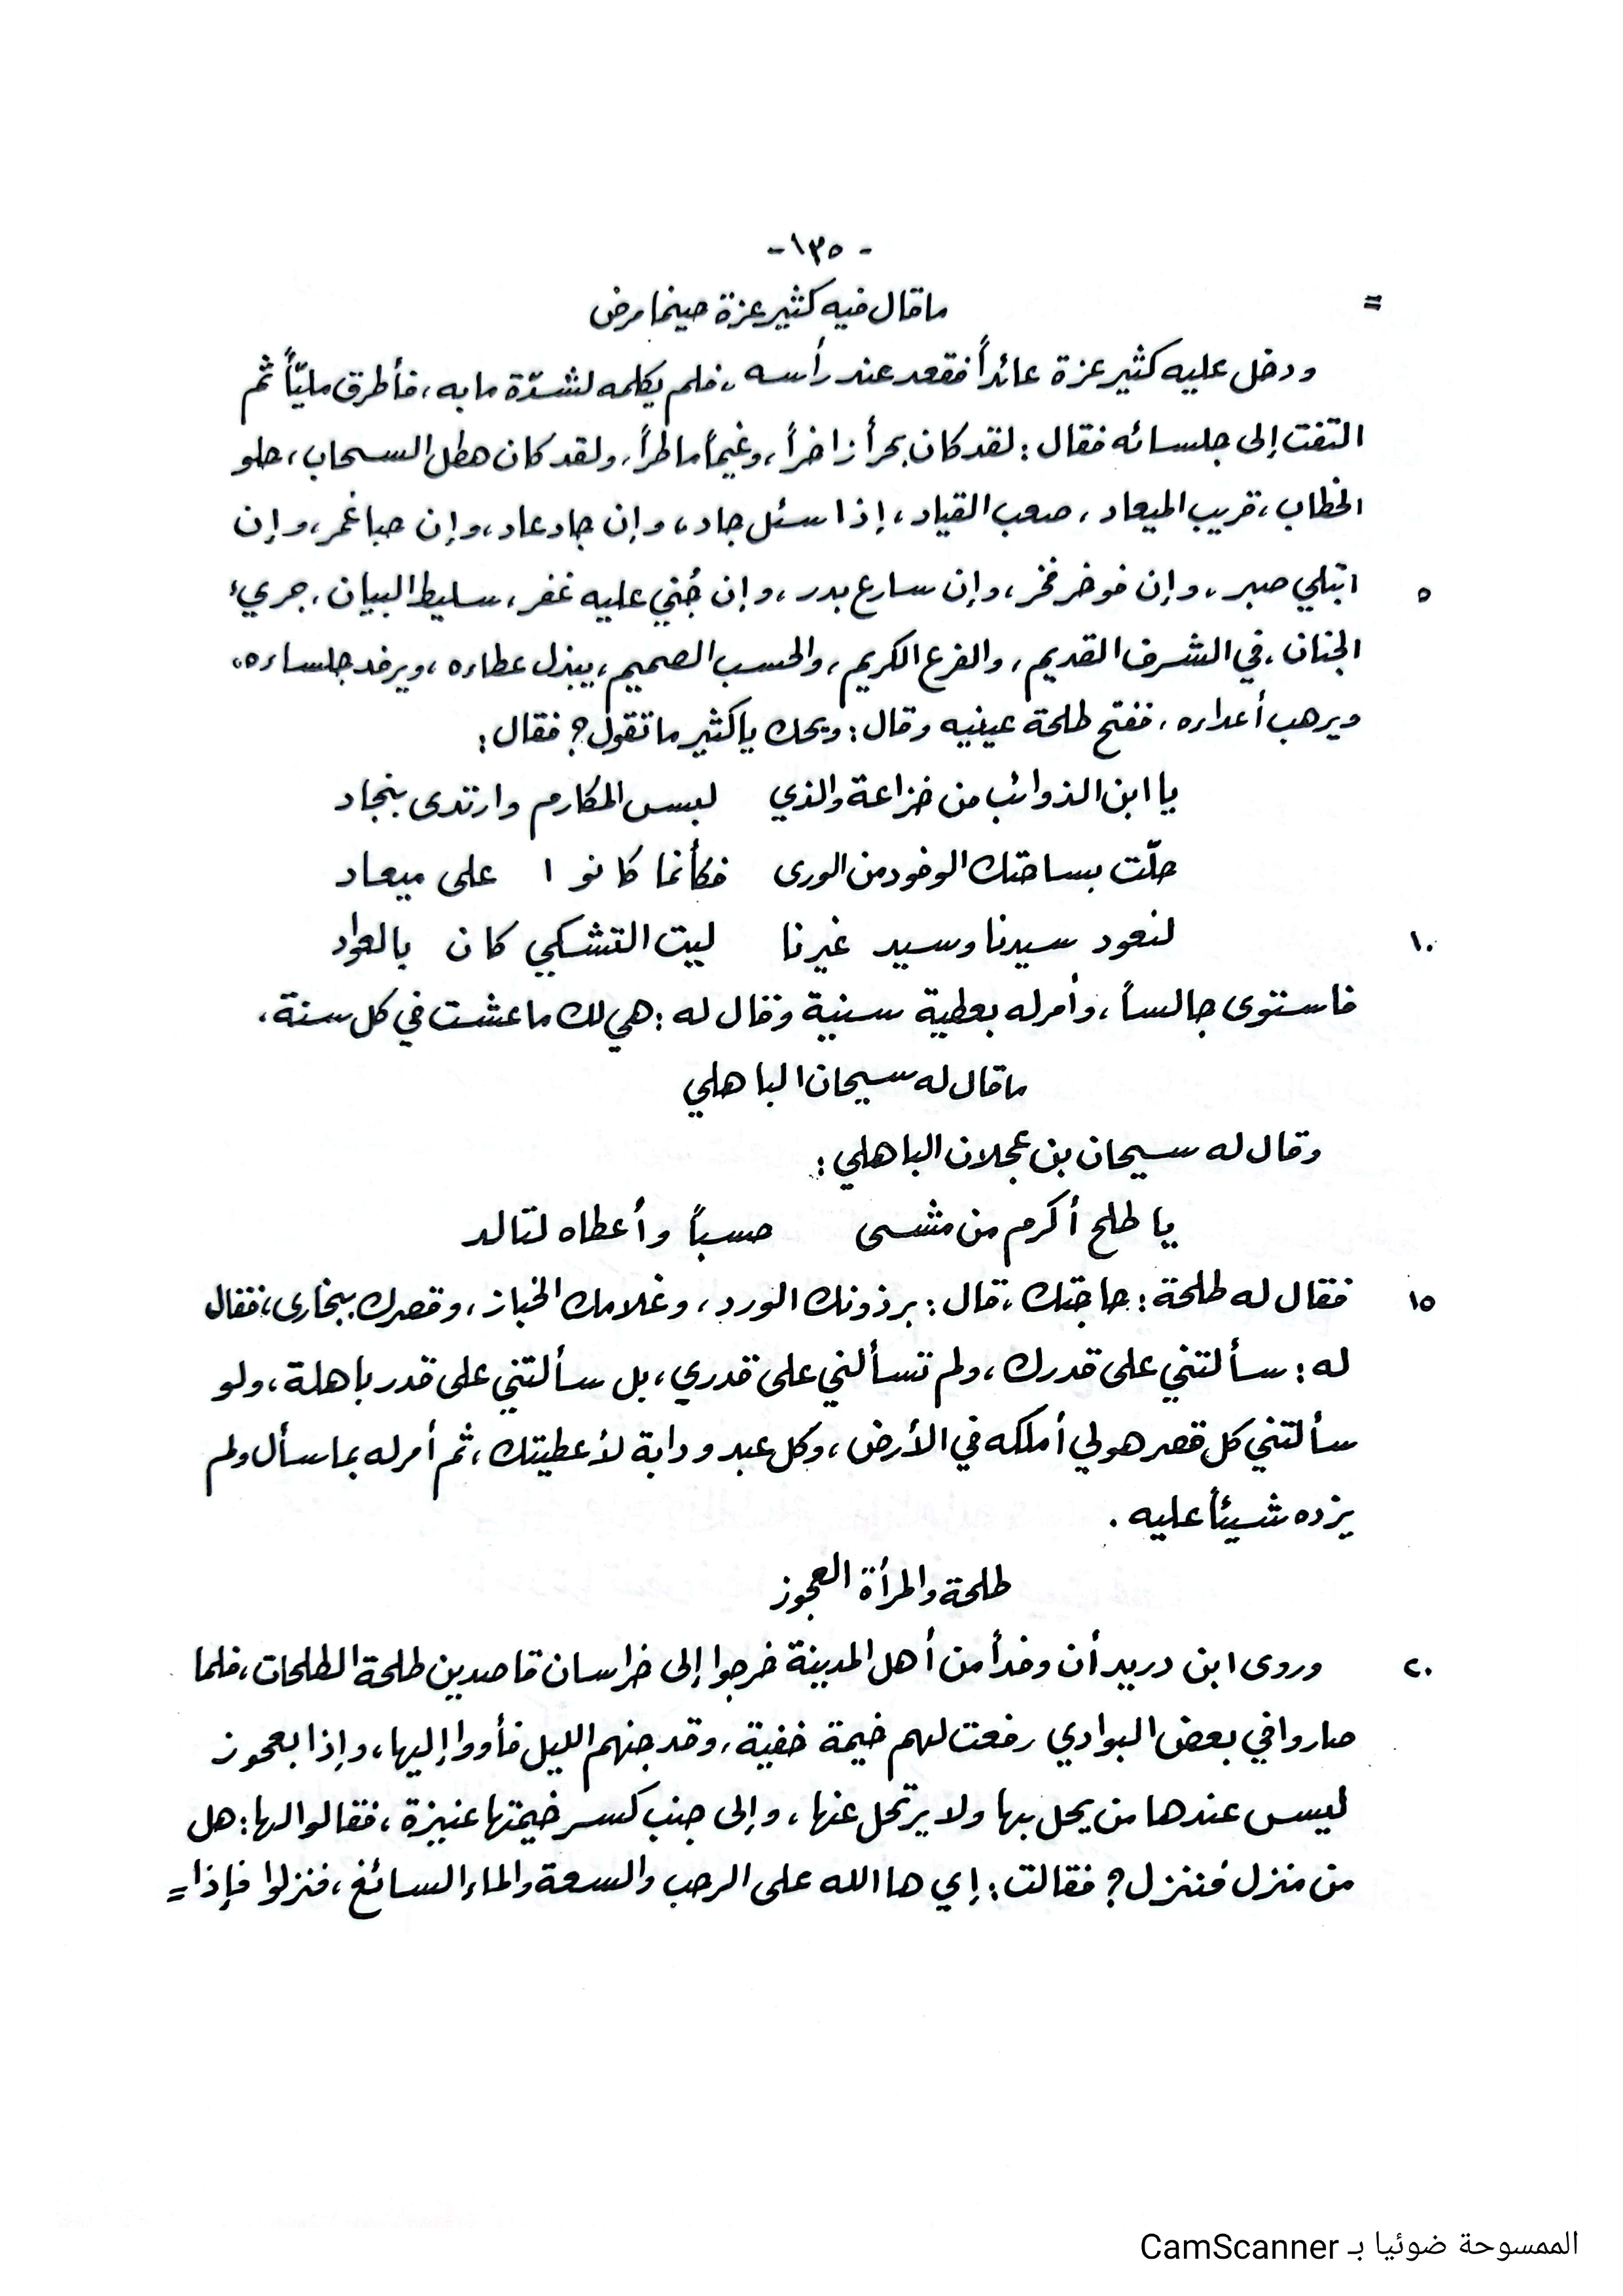 - ١٣٥ -
= ما قال فيه كثير عزة حينما مرض
ودخل عليه كثير عزة عائداً فقعد عند رأسه، فلم يكلمه لشدّة ما به، فأطرق مليّاً ثم
التفت إلى جلسائه فقال: لقد كان بحراً زاخراً، وغيماً ماطراً، ولقد كان هطل السحاب، حلو
الخطاب، قريب الميعاد، صعب القياد، إذا سئل جاد، وإن جاد عاد، وإن حبا غمر، وإن
٥ ابتلي صبر، وإن فوخر فخر، وإن سارع بدر، وإن جُني عليه غفر، سليط البيان، جريء
الجنان، في الشرف القديم، والفرع الكريم، والحسب الصميم، يبذل عطاءه، ويرفد جلساءه،
ويرهب أعداءه، ففتح طلحة عينيه وقال: ويحك ياكثير ما تقول؟ فقال:
يا ابن الذوائب من خزاعة والذي لبس المكارم وارتدى بنجاد
حلّت بساحتك الوفود من الورى فكأنما كانوا على ميعاد
١٠ لنعود سيدنا وسيد غيرنا ليت التشكي كان بالعواد
فاستوى جالساً، وأمر له بعطية سنية وقال له: هي لك ما عشت في كل سنة.
ما قال له سيحان الباهلي
وقال له سيحان بن عجلان الباهلي:
يا طلح أكرم من مشى حسباً وأعطاه لتالد
١٥ فقال له طلحة: حاجتك، قال: برذونك الورد، وغلامك الخباز، وقصرك ببخارى، فقال
له: سألتني على قدرك، ولم تسألني على قدري، بل سألتني على قدر باهلة، ولو
سألتني كل قصر هو لي أملكه في الأرض، وكل عبد ودابة لأعطيتك، ثم أمر له بما سأل ولم
يزده شيئاً عليه.
طلحة والمرأة العجوز
٢٠ وروى ابن دريد أن وفداً من أهل المدينة خرجوا إلى خراسان قاصدين طلحة الطلحات، فلما
صاروا في بعض البوادي رفعت لهم خيمة خفية، وقد جنهم الليل فأووا إليها، وإذا بعجوز
ليس عندها من يحل بها ولا يرتحل عنها، وإلى جنب كسر خيمتها عنيزة، فقالوا لها: هل
من منزل فننزل؟ فقالت: إي ها الله على الرحب والسعة والماء السائغ، فنزلوا فإذا =
الممسوحة ضوئيا بـ CamScanner